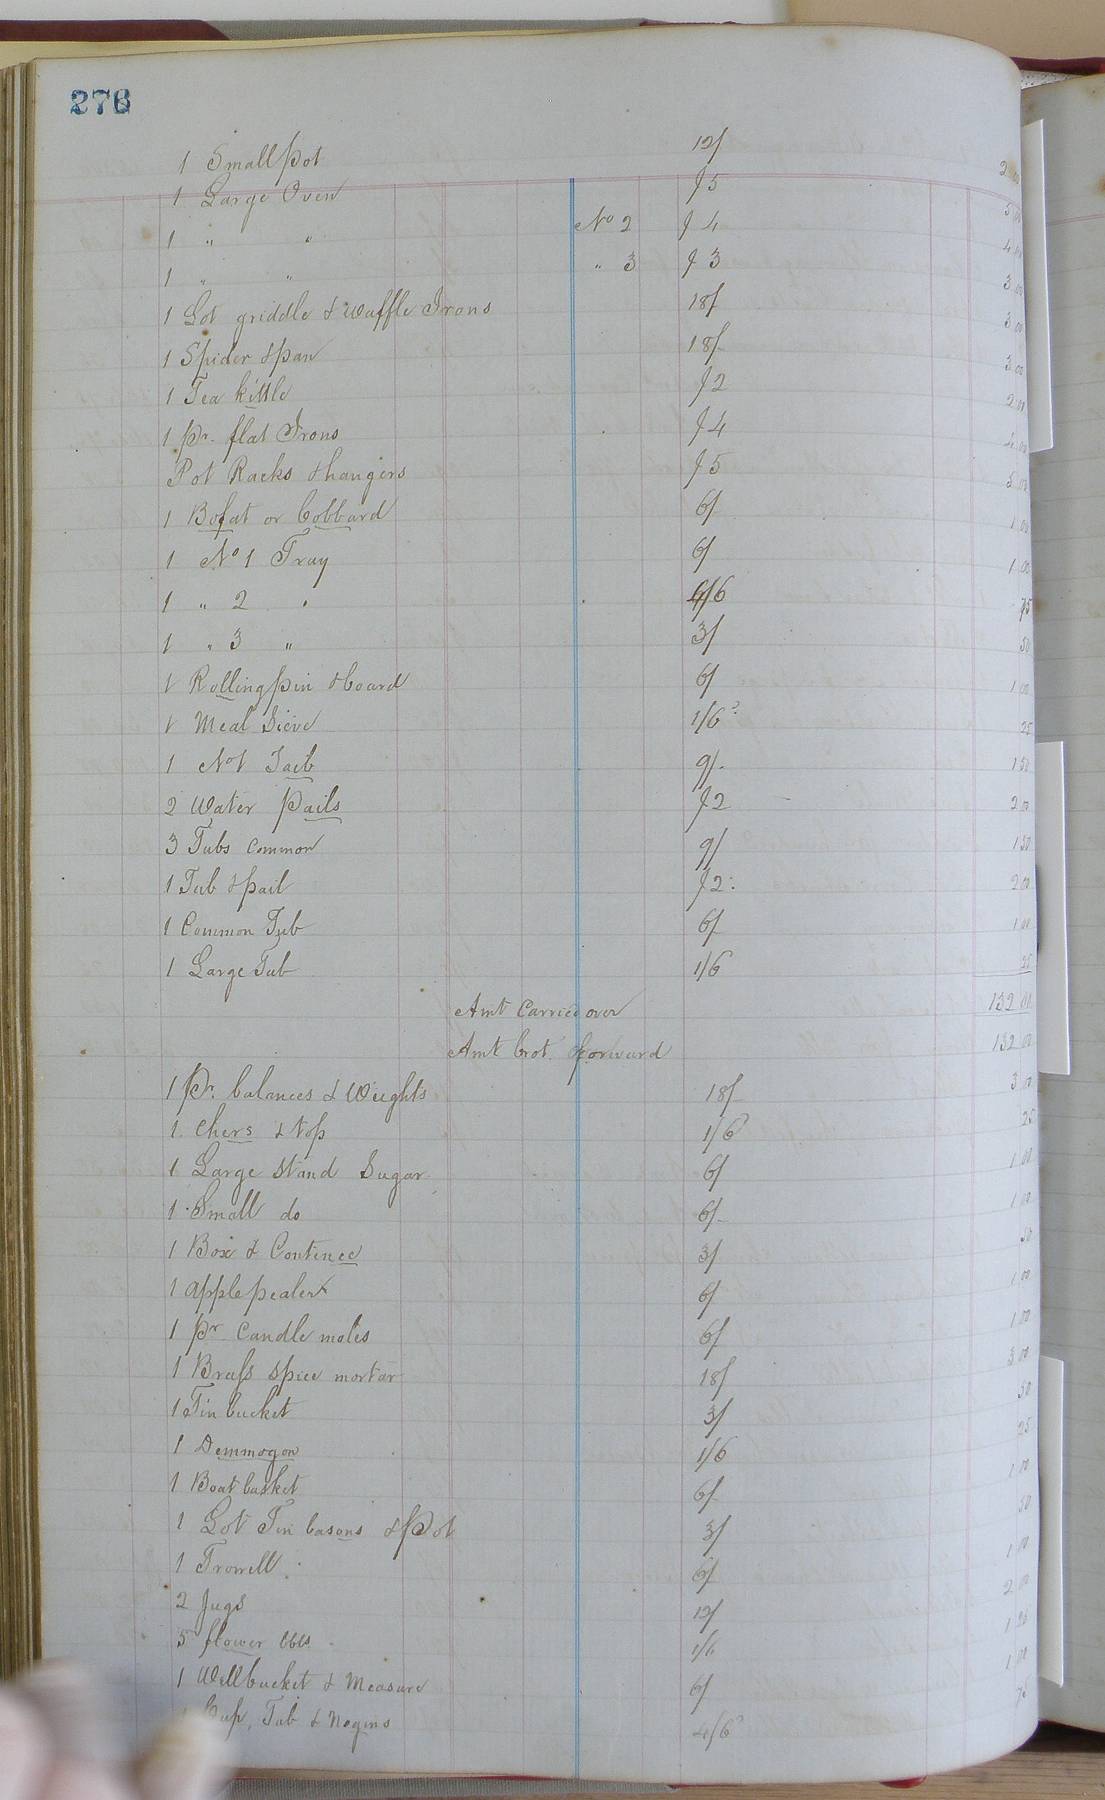 276
1 Small pot 12/ 2 00
1 Large Oven $5 5 00
1 " " No 2 $4 4 00
1 " " " 3 $3 3 00
1 Lot griddle & Waffle Irons 18/ 3 00
1 Spider & pan 18/ 3 00
1 Tea kittle $2 2 00
1 pr. flat Irons $4 4 00
Pot Racks & hangers $5 5 00
1 Bofat or Cobbard 6/ 1 00
1 No 1 Tray 6/ 1 00
1 " 2 " 4/6 75
1 " 3 " 3/ 50
1 Rolling pin & board 6/ 1 00
1 Meal Sieve 1/6 25
1 No 1 9/ 1 50
2 Water pails $2 2 00
3 Tubs common 9/ 1 50
1 Tub & pail $2 2 00
1 Common Tub 6/ 1 00
1 Large Tub 1/6 25
Amt Carried over 132 00
Amt brot. forward 132 00
1 Pr. balances & Weights 18/ 3 00
1 Chers & top 1/6 25
1 Large Stand Sugar 6/ 1 00
1 Small do 6/ 1 00
1 Box & Contence 3/ 50
1 apple pealer 6/ 1 00
1 pr Candle moles 6/ 1 00
1 Brass spice mortar 18/ 3 00
1 Tin bucket 3/ 50
1 Demmogon 1/6 25
1 Boat basket 6/ 1 00
1 Lot Tin basons & Pot 3/ 50
1 Trowell 6/ 1 00
2 Jugs 12/ 2 00
5 flower bbls. 1/6 1 25
1 Well bucket & Measure 6/ 1 00
Cup, Tub & Nogins 4/6 75